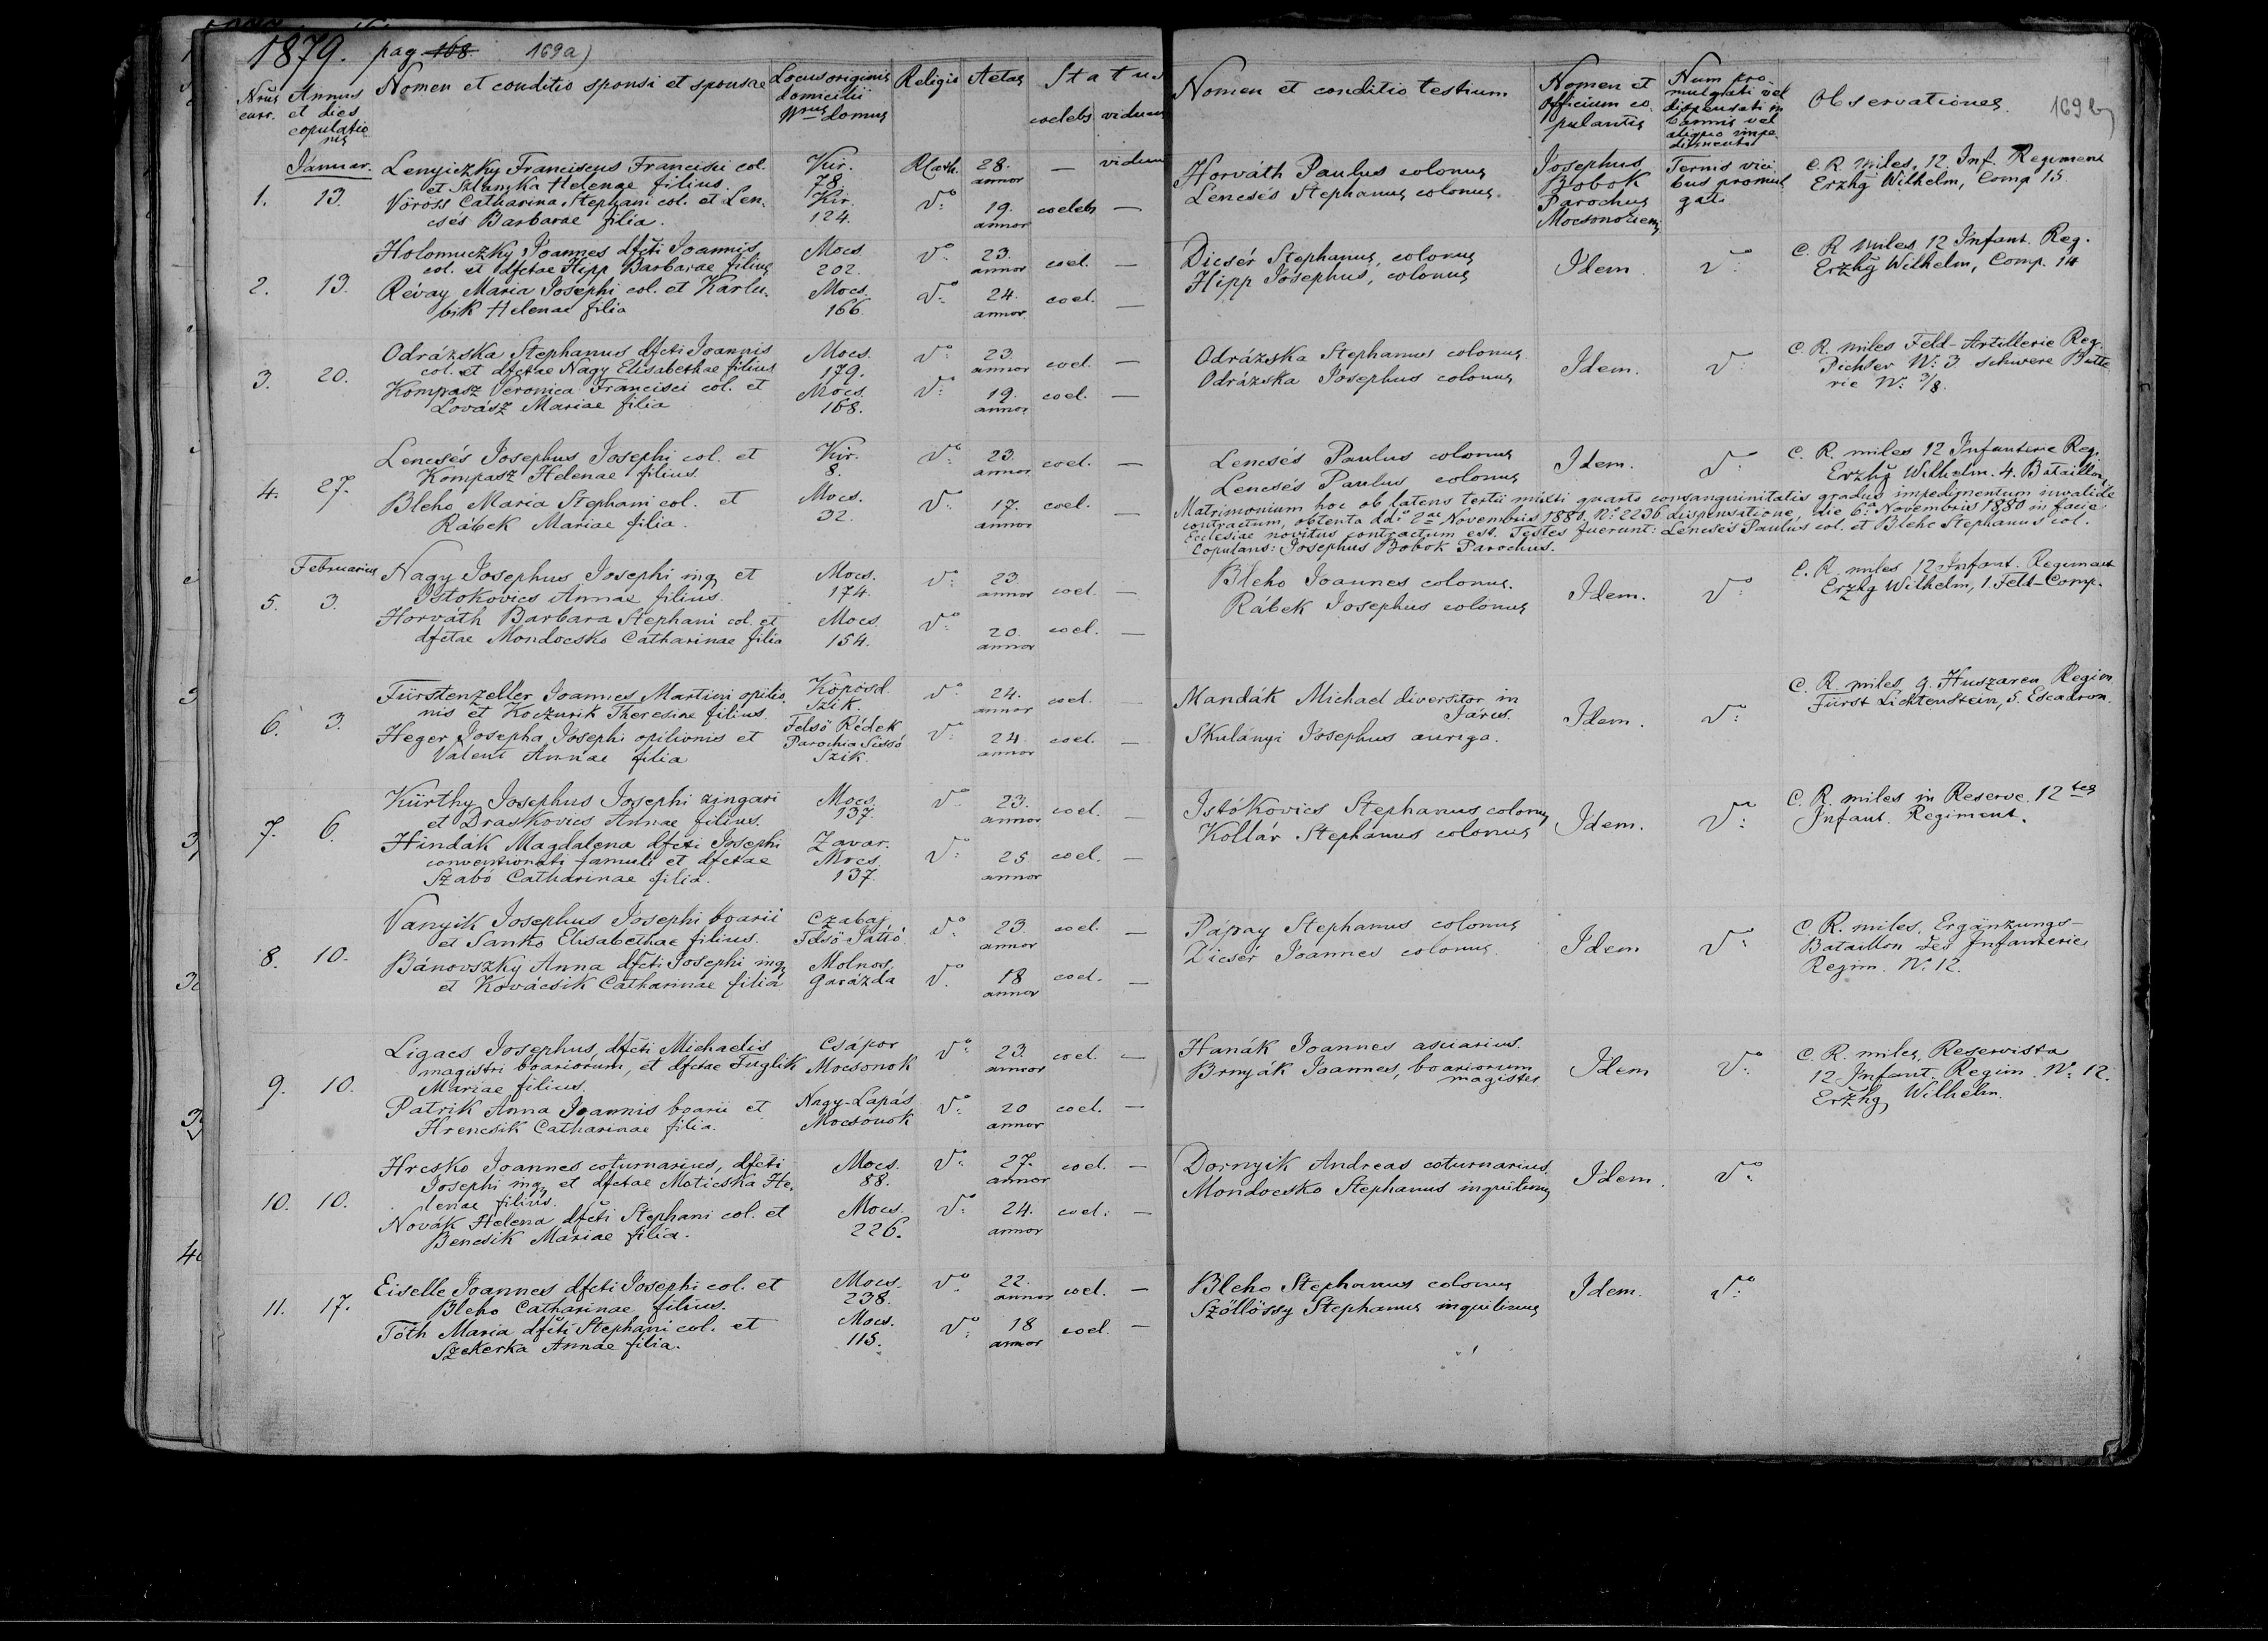 1879. pag. 168. 169a)
Nrus curr.
Annus et dies copulationis
Nomen et conditio sponsi et sponsae
Locus originis domicilii Nrus domus
Religio
Aetas
Status
coelebs viduus
Nomen et conditio testium
Nomen et officium copulantis
Num promulgati vel dispensati in bannis vel aliquo impedimento
Observationes.
169b)
Januar.
1. 13.
Lenyiczky Franciscus Francisci col.
et Sztanyka Helenae filius.
Kir. 78. R Cath. 28. annor — viduus
Vöröss Catharina, Stephani col. et Len-
csés Barbarae filia.
Kir. 124. do 19. annor coelebs —
Horváth Paulus colonus
Lencsés Stephanus colonus.
Josephus Bobok Parochus Mocsonokien
Ternis vicibus promulgati
C. R. miles, 12 Inf. Regiment
Erzhg Wilhelm, Comp 15.
2. 13.
Holomuczky Joannes dfcti Joannis
col. et dfctae Hipp Barbarae filius
Mocs. 202. do 23. annor coel. —
Révay Maria Josephi col. et Karlu-
bik Helenae filia
Mocs. 166. do 24. annor coel. —
Dicsér Stephanus, colonus
Hipp Josephus, colonus
Idem. do
C. R. miles 12 Infant. Reg.
Erzhg Wilhelm, Comp. 14
3. 20.
Odrázska Stephanus dfcti Joannis
col. et dfctae Nagy Elisabethae filius
Mocs. 179. do 23. annor coel. —
Kompasz Veronica Francisci col. et
Lovász Mariae filia
Mocs. 168. do 19. annor coel. —
Odrázska Stephanus colonus
Odrázska Josephus colonus
Idem. do
C. R. miles Feld-Artillerie Reg.
Pichler No: 3 schwere Batte
rie No: 3/8.
4. 27.
Lencsés Josephus Josephi col. et
Kompasz Helenae filius.
Kir. 8. do 23. annor coel. —
Bleho Maria Stephani col. et
Rábek Mariae filia.
Mocs. 32. do 17. annor coel. —
Lencsés Paulus colonus
Lencsés Paulus colonus
Idem. do
C. R. miles 12 Infanterie Reg.
Erzhg Wilhelm. 4. Bataillon
Matrimonium hoc ob latens tertii mixti quarto consanguinitatis gradus impedimentum invalide
contractum, obtenta ddo 2ae Novembris 1880. No: 2236 dispensatione, die 6a Novembris 1880 in facie
Ecclesiae novitus contractum est. Testes fuerunt: Lencsés Paulus col. et Bleho Stephanus col.
Copulans: Josephus Bobok Parochus.
Februarius
5. 3.
Nagy Josephus Josephi inq et
Istokovics Annae filius.
Mocs. 174. do 23. annor coel. —
Horváth Barbara Stephani col. et
dfctae Mondocsko Catharinae filia
Mocs. 154. do 20. annor coel. —
Bleho Joannes colonus.
Rábek Josephus colonus
Idem. do
C. R. miles 12 Infant. Regiment
Erzhg Wilhelm, 1. Feld-Comp.
6. 3.
Fürstenzeller Joannes Martini opilio-
nis et Koczurik Theresiae filius.
Köpösd. Szik. do 24. annor coel. —
Heger Josepha, Josephi opilionis et
Valent Annae filia
Felső Rédek Parochia Süssó Szik. do 24. annor coel. —
Mandák Michael diversitor in
Járus.
Skulányi Josephus auriga.
Idem. do
C. R. miles 9. Huszaren Regim
Fürst Lichtenstein, 5. Escadron.
7. 6.
Kürthy Josephus Josephi zingari
et Draskovics Annae filius.
Mocs. 137. do 23. annor coel. —
Hindák Magdalena dfcti Josephi
conventionati famuli et dfctae
Szabó Catharinae filia.
Zavar. Mocs. 137. do 25. annor coel. —
Istókovics Stephanus colonus
Kollár Stephanus colonus
Idem. do
C. R. miles in Reserve. 12tes
Infant. Regiment.
8. 10.
Vanyik Josephus Josephi boarii
et Sanko Elisabethae filius.
Czabaj Felső-Jattó. do 23. annor coel. —
Bánovszky Anna dfcti Josephi inq
et Kovácsik Catharinae filia
Molnos. Garázda do 18 annor coel. —
Pápay Stephanus colonus
Dicsér Joannes colonus
Idem do
C. R. miles, Ergänzungs-
Bataillon des Infanterie
Regim. No: 12.
9. 10.
Ligacs Josephus, dfcti Michaelis
magistri boariorum, et dfctae Fuglik
Mariae filius.
Csápor Mocsonok do 23. annor coel. —
Patrik Anna Joannis boarii et
Hrencsik Catharinae filia.
Nagy-Lapás Mocsonok do 20 annor coel. —
Hanák Joannes asuarius.
Brnyák Joannes, boariorum
magister
Idem do
C. R. miles, Reservista
12 Infant. Regim. No: 12.
Erzhg Wilhelm.
10. 10.
Hresko Joannes coturnarius, dfcti
Josephi inq et dfctae Moticska He-
lenae filius.
Mocs. 88. do 27. annor coel. —
Novák Helena dfcti Stephani col. et
Bencsik Mariae filia.
Mocs. 226. do 24. annor coel. —
Dornyik Andreas coturnarius.
Mondocsko Stephanus inquilinus
Idem. do
11. 17.
Eiselle Joannes dfcti Josephi col. et
Bleho Catharinae filius.
Mocs. 238. do 22. annor coel. —
Tóth Maria dfcti Stephani col. et
Szekerka Annae filia.
Mocs. 115. do 18 annor coel. —
Bleho Stephanus colonus
Szöllössy Stephanus inquilinus
Idem. do